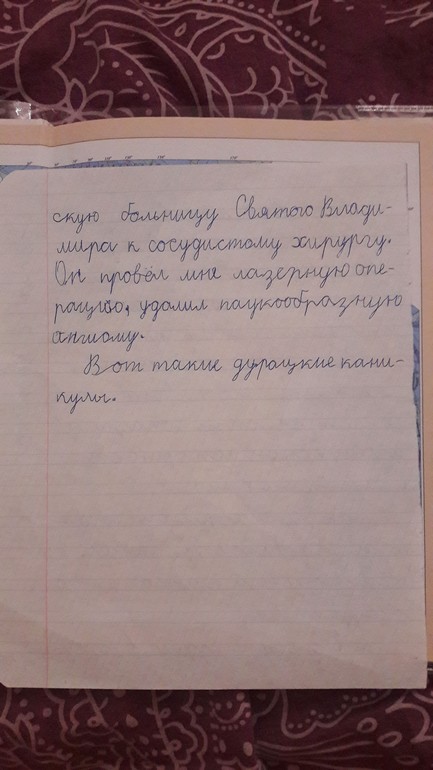 скую больницу Святого Влади-
мира к сосудистому хирургу.
Он провёл мне лазерную опе-
рацию, удалил паукообразную
ангиому.
Вот такие дурацкие кани-
кулы.